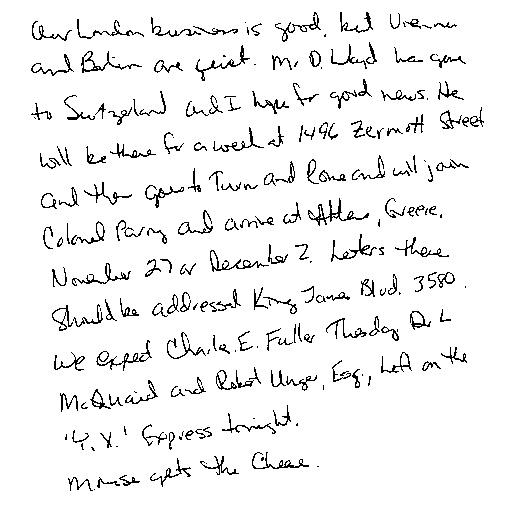 Our London business is good, but Vienna
and Berlin are quiet. Mr. D. Lloyd has gone
to Switzerland and I hope for good news. He
will be there for a week at 1496 Zermott Street
and then goes to Turin and Rome and will join
Colonel Parry and arrive at Athens, Greece,
November 27 or December 2. Letters there
should be addressed King James Blvd. 3580.
We expect Charles E. Fuller Thesday Dr. L
McQuaid and Robert Unger, Esq., left on the
'Y.X.' Express tonight.
Mouse gets the Cheese.